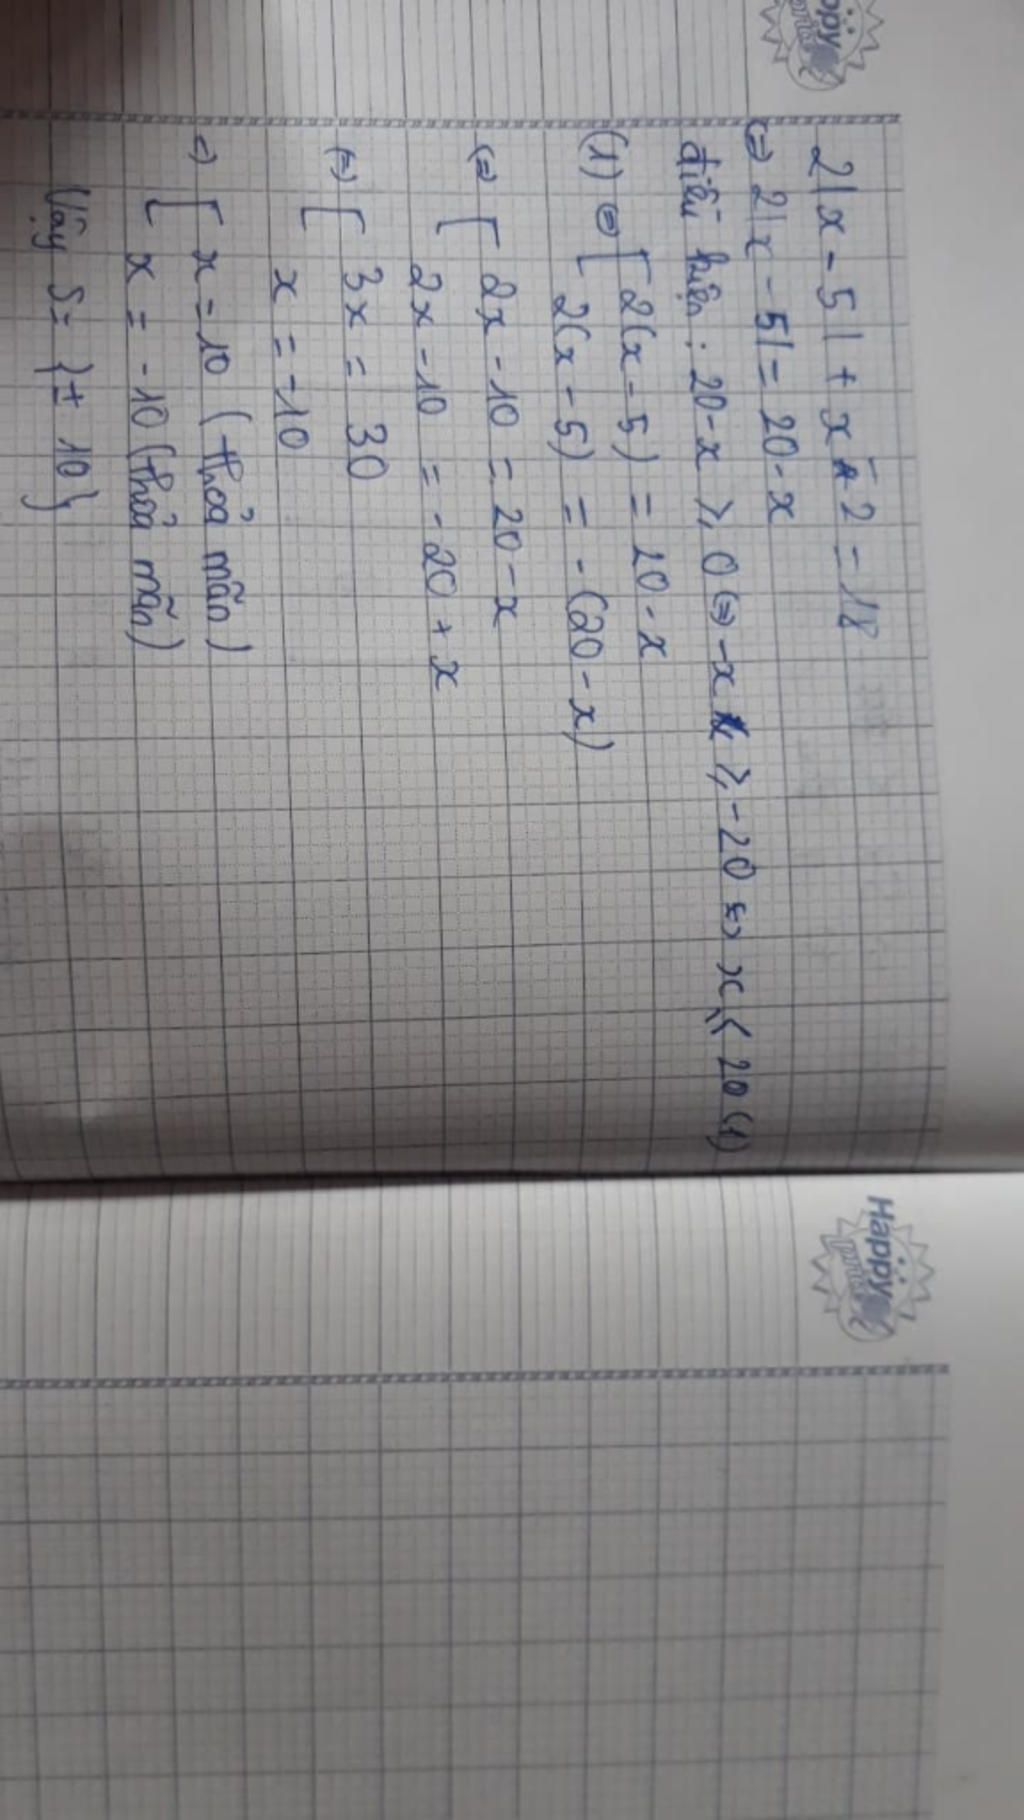 2|x - 5| + x - 2 = 18
<=> 2|x - 5| = 20 - x
điều kiện : 20 - x ⩾ 0 <=> -x ⩾ -20 <=> x ⩽ 20 (1)
(1) <=> [ 2(x - 5) = 20 - x
2(x - 5) = - (20 - x)
<=> [ 2x - 10 = 20 - x
2x - 10 = - 20 + x
<=> [ 3x = 30
x = -10
=> [ x = 10 (thỏa mãn)
x = -10 (thỏa mãn)
Vậy S = {± 10}
Happy